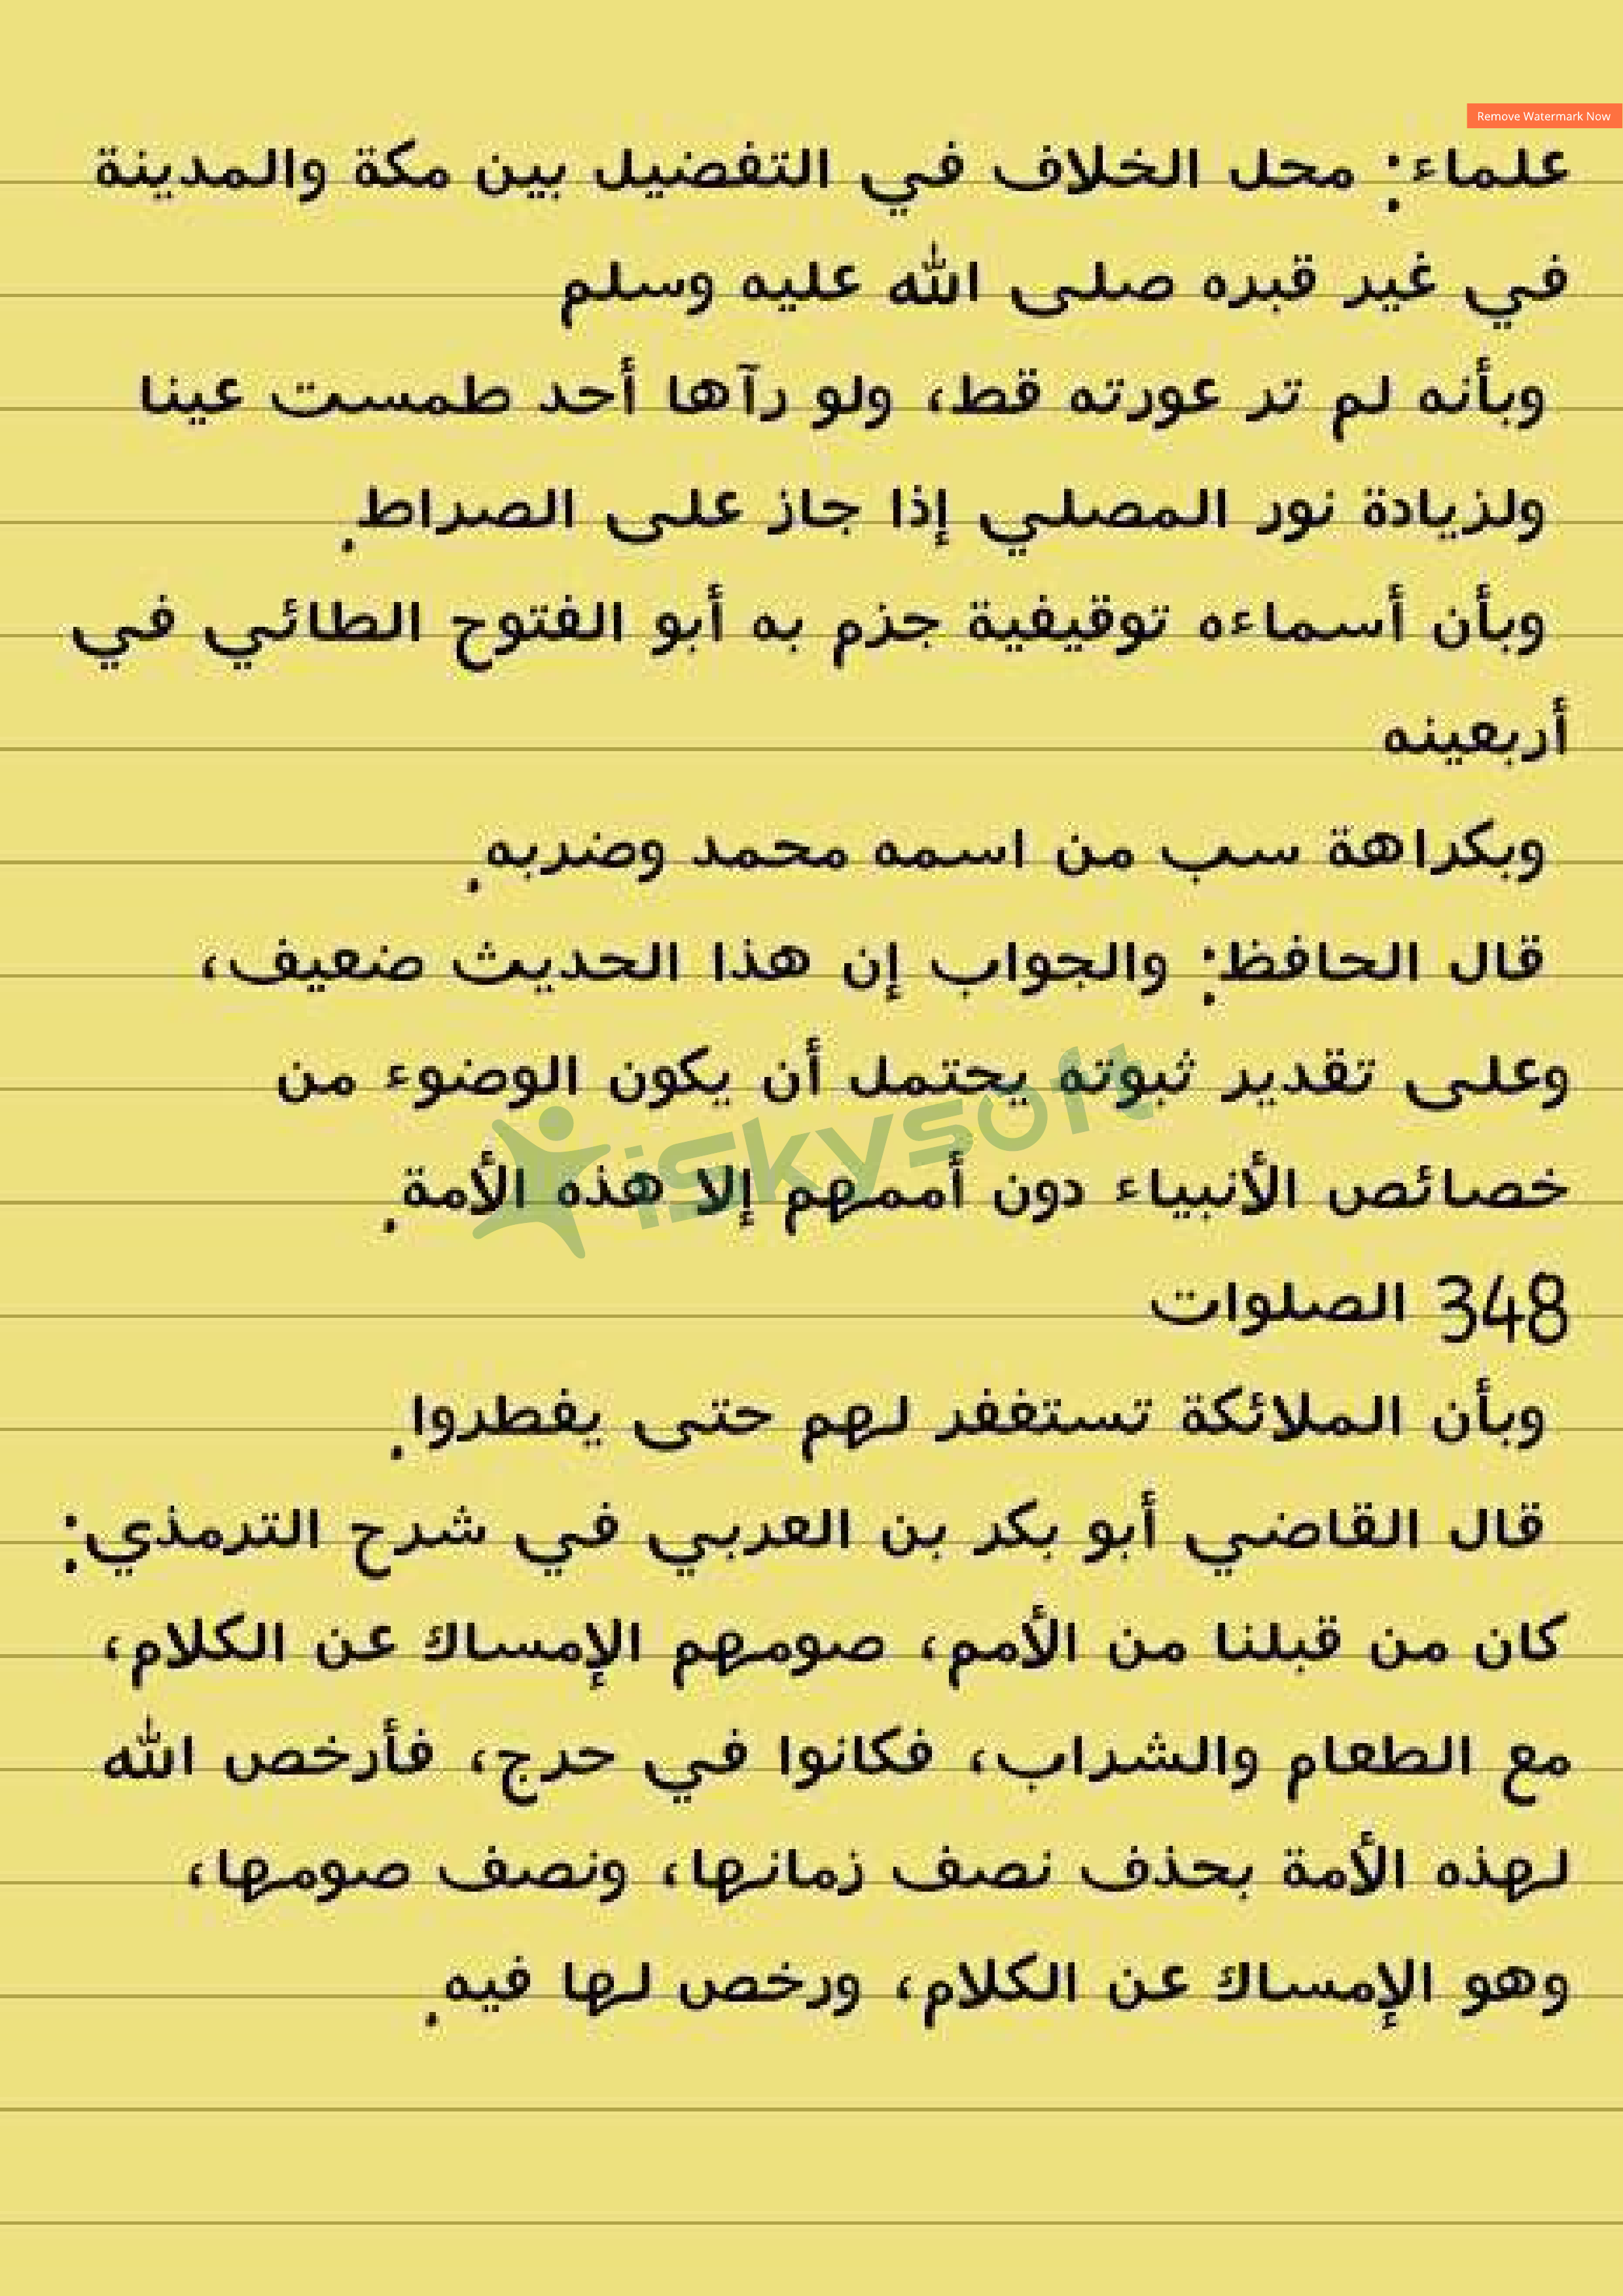 Remove Watermark Now
علماء: محل الخلاف في التفضيل بين مكة والمدينة
في غير قبره صلى الله عليه وسلم
وبأنه لم تر عورته قط، ولو رآها أحد طمست عينا
ولزيادة نور المصلي إذا جاز على الصراط.
وبأن أسماءه توقيفية جزم به أبو الفتوح الطائي في
أربعينه
وبكراهة سب من اسمه محمد وضربه.
قال الحافظ: والجواب إن هذا الحديث ضعيف،
وعلى تقدير ثبوته يحتمل أن يكون الوضوء من
خصائص الأنبياء دون أممهم إلا هذه الأمة.
iskysoft
348 الصلوات
وبأن الملائكة تستغفر لهم حتى يفطروا.
قال القاضي أبو بكر بن العربي في شرح الترمذي:
كان من قبلنا من الأمم، صومهم الإمساك عن الكلام،
مع الطعام والشراب، فكانوا في حرج، فأرخص الله
لهذه الأمة بحذف نصف زمانها، ونصف صومها،
وهو الإمساك عن الكلام، ورخص لها فيه.